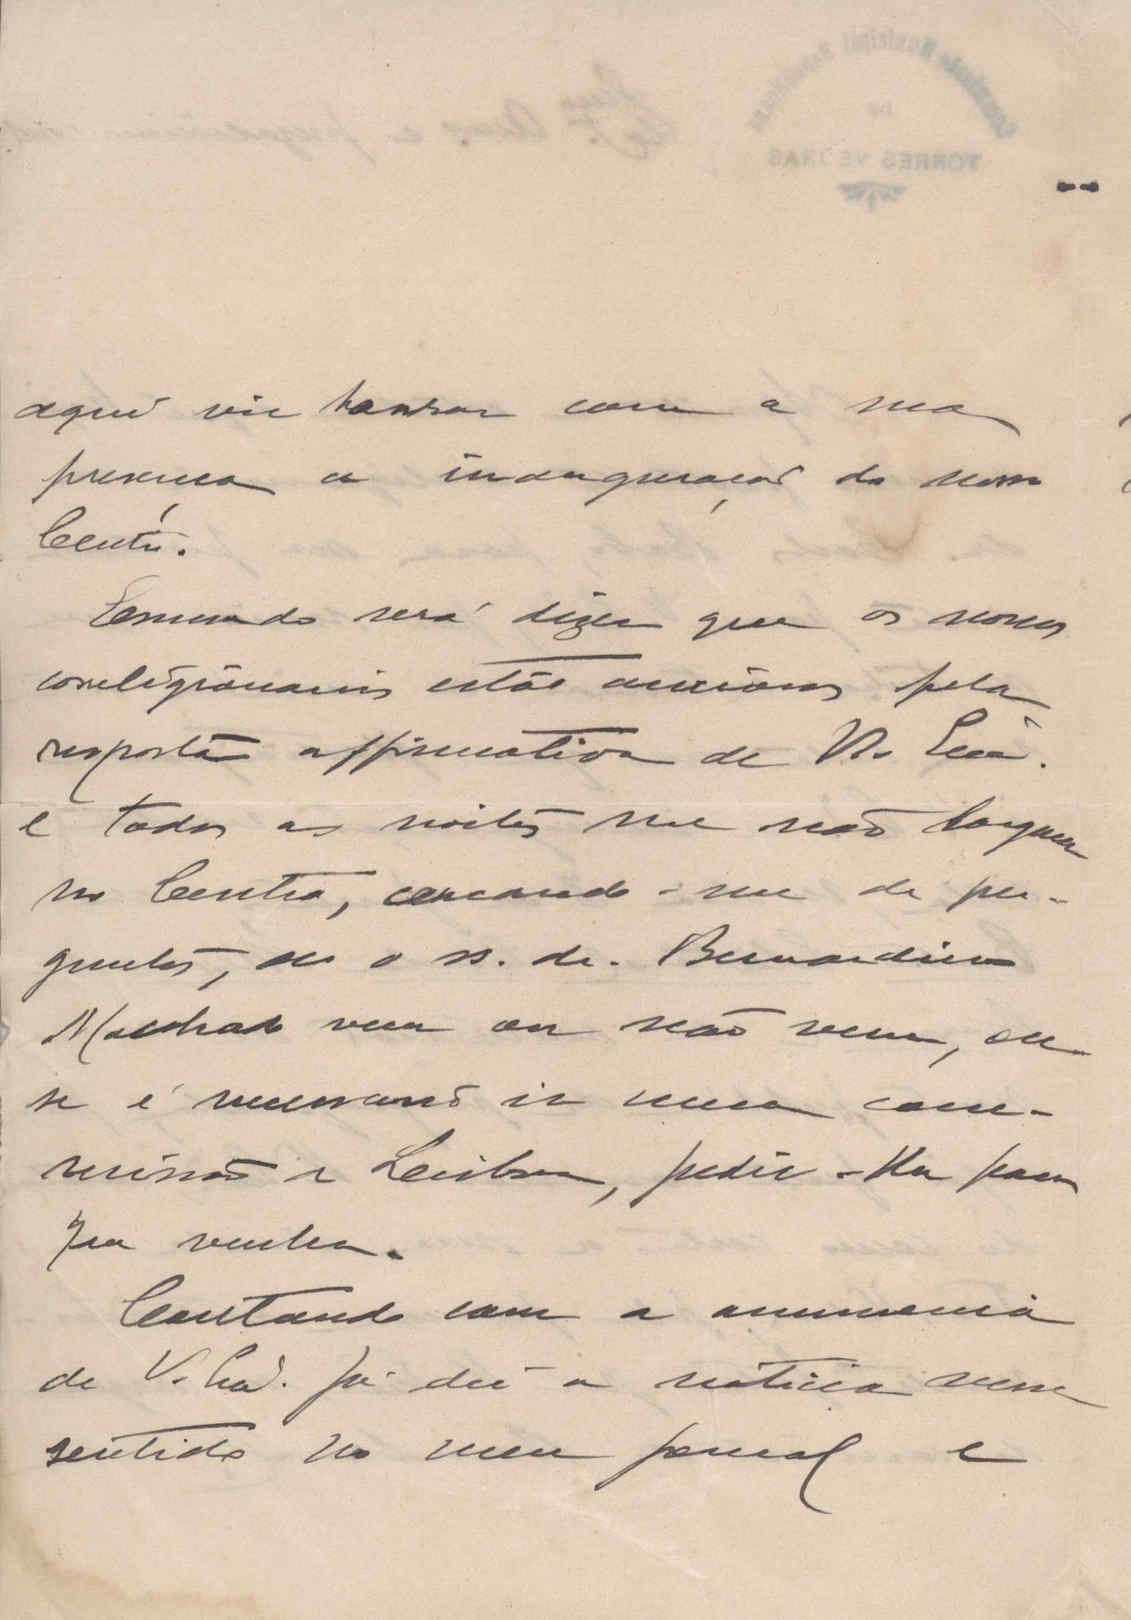 aqui vir honrar com a sua
presença a inauguração do nosso
Centro.
Escusado será dizer que os nossos
correligionarios estão anciosos pela
resposta affirmativa de V. Exª.
e todas as noites me não largam
no Centro, cercando-me de per-
guntas, se o sr. dr. Bernardino
Machado vem ou não vem, ou
se é necessario ir uma com-
missão a Lisboa, pedir-lhe para
que venha.
Contando com a annuencia
de V. Exª. já dei a noticia nesse
sentido no meu jornal e
Commissão Municipal Republicana
DE
TORRES VEDRAS